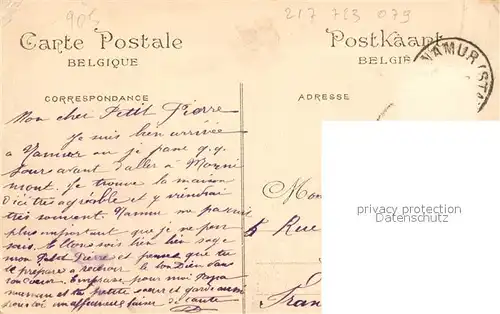 905
217 723 079
Carte Postale
BELGIQUE
Postkaart
BELGIË
NAMUR (STA
CORRESPONDANCE
ADRESSE
Mon cher Petit Pierre
Je suis bien arrivée
a Namur ou je passe q.q.
jours avant d'aller à
mont. Je trouve la maison
d'ici très agréable et y viendrai
très souvent Namur me parait
plus important que je ne pen
sais. bien bien sage
mon Petit Pierre et pense que tu
te prépare a recevoir le bon Dieu dans
ton cœur. Embrasse pour moi Papa
maman et ta petite sœur et garde aussi
pour toi un affectueux baiser de tante
Mon
Rue
Fran
privacy protection
Datenschutz